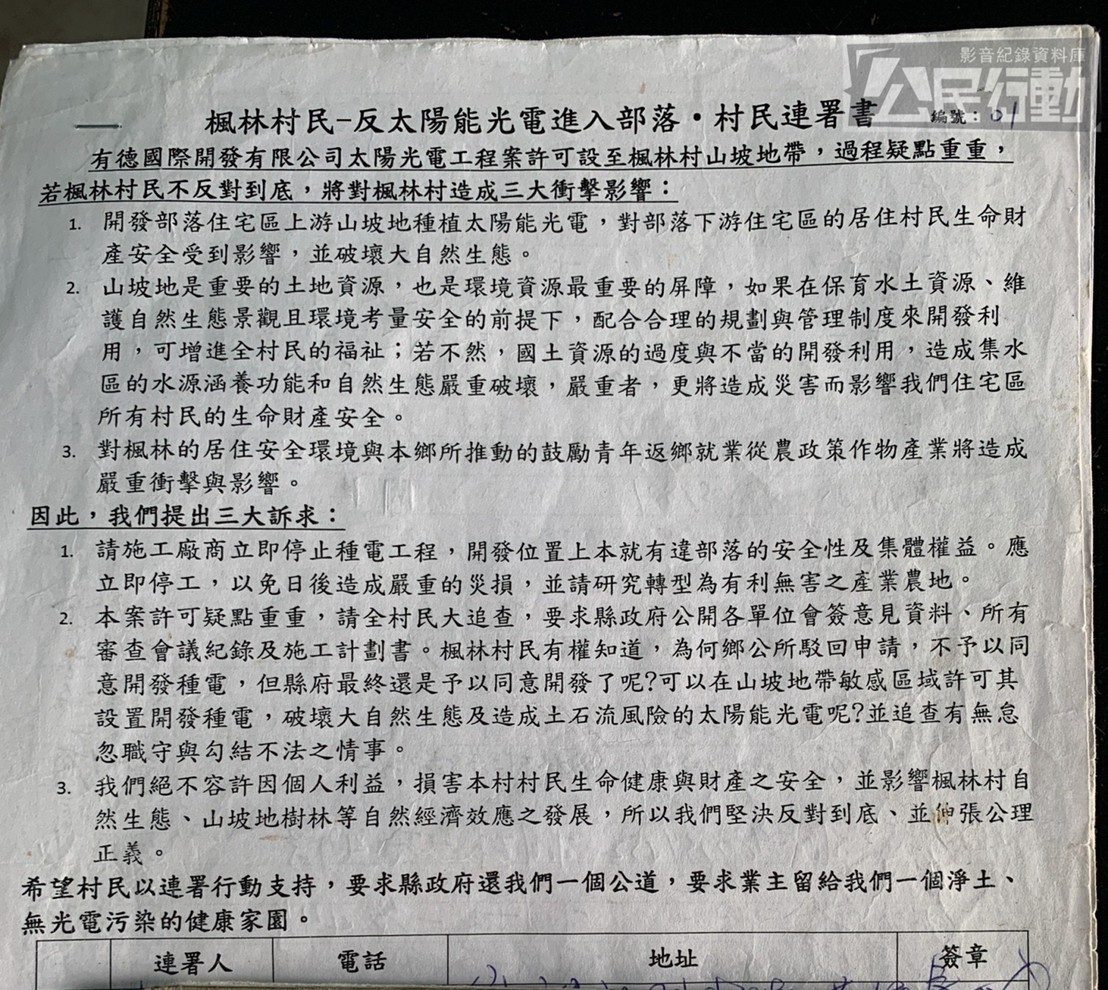 影音紀錄資料庫
公民行動
楓林村民-反太陽能光電進入部落·村民連署書 編號：01
有德國際開發有限公司太陽光電工程案許可設至楓林村山坡地帶，過程疑點重重，
若楓林村民不反對到底，將對楓林村造成三大衝擊影響：
1. 開發部落住宅區上游山坡地種植太陽能光電，對部落下游住宅區的居住村民生命財
產安全受到影響，並破壞大自然生態。
2. 山坡地是重要的土地資源，也是環境資源最重要的屏障，如果在保育水土資源、維
護自然生態景觀且環境考量安全的前提下，配合合理的規劃與管理制度來開發利
用，可增進全村民的福祉；若不然，國土資源的過度與不當的開發利用，造成集水
區的水源涵養功能和自然生態嚴重破壞，嚴重者，更將造成災害而影響我們住宅區
所有村民的生命財產安全。
3. 對楓林的居住安全環境與本鄉所推動的鼓勵青年返鄉就業從農政策作物產業將造成
嚴重衝擊與影響。
因此，我們提出三大訴求：
1. 請施工廠商立即停止種電工程，開發位置上本就有違部落的安全性及集體權益。應
立即停工，以免日後造成嚴重的災損，並請研究轉型為有利無害之產業農地。
2. 本案許可疑點重重，請全村民大追查，要求縣政府公開各單位會簽意見資料、所有
審查會議紀錄及施工計劃書。楓林村民有權知道，為何鄉公所駁回申請，不予以同
意開發種電，但縣府最終還是予以同意開發了呢?可以在山坡地帶敏感區域許可其
設置開發種電，破壞大自然生態及造成土石流風險的太陽能光電呢?並追查有無怠
忽職守與勾結不法之情事。
3. 我們絕不容許因個人利益，損害本村村民生命健康與財產之安全，並影響楓林村自
然生態、山坡地樹林等自然經濟效應之發展，所以我們堅決反對到底、並伸張公理
正義。
希望村民以連署行動支持，要求縣政府還我們一個公道，要求業主留給我們一個淨土、
無光電污染的健康家園。
連署人 電話 地址 簽章